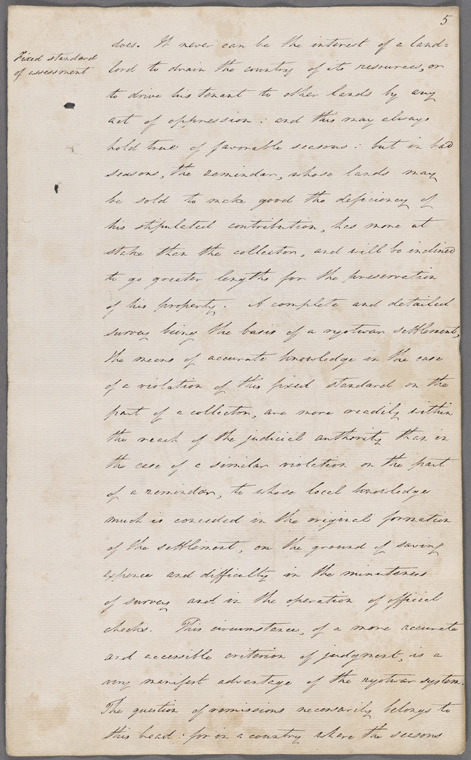 5
Fixed standard
of assessment
does. It never can be the interest of a land=
lord to drain the country of its resources, or
to drive his tenant to other lands by any
act of oppression: and this may always
hold true of favorable seasons: but in bad
seasons, the zemindar, whose lands may
be sold to make good the deficiency of
his stipulated contribution, has more at
stake than the collector, and will be inclined
to go greater lengths for the preservation
of his property. A complete and detailed
survey being the basis of a ryotwar settlement,
the means of accurate knowledge in the case
of a violation of this fixed standard on the
part of a collector, are more readily within
the reach of the judicial authority than in
the case of a similar violation on the part
of a zemindar, to whose local knowledge
much is conceded in the original formation
of the settlement, on the ground of saving
expence and difficulty in the minuteness
of survey and in the operation of official
checks. This circumstance, of a more accurate
and accessible criterion of judgment, is a
very manifest advantage of the ryotwar system.
The question of remissions necessarily belongs to
this head: for in a country where the seasons